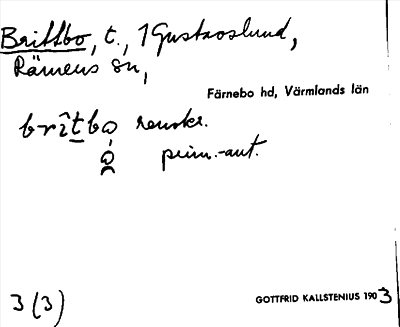 Brittbo, t., 1 Gustavslund,
Rämens sn,
Färnebo hd, Värmlands län
brîtbo renskr.
prim.-ant.
3 (3)
GOTTFRID KALLSTENIUS 1903